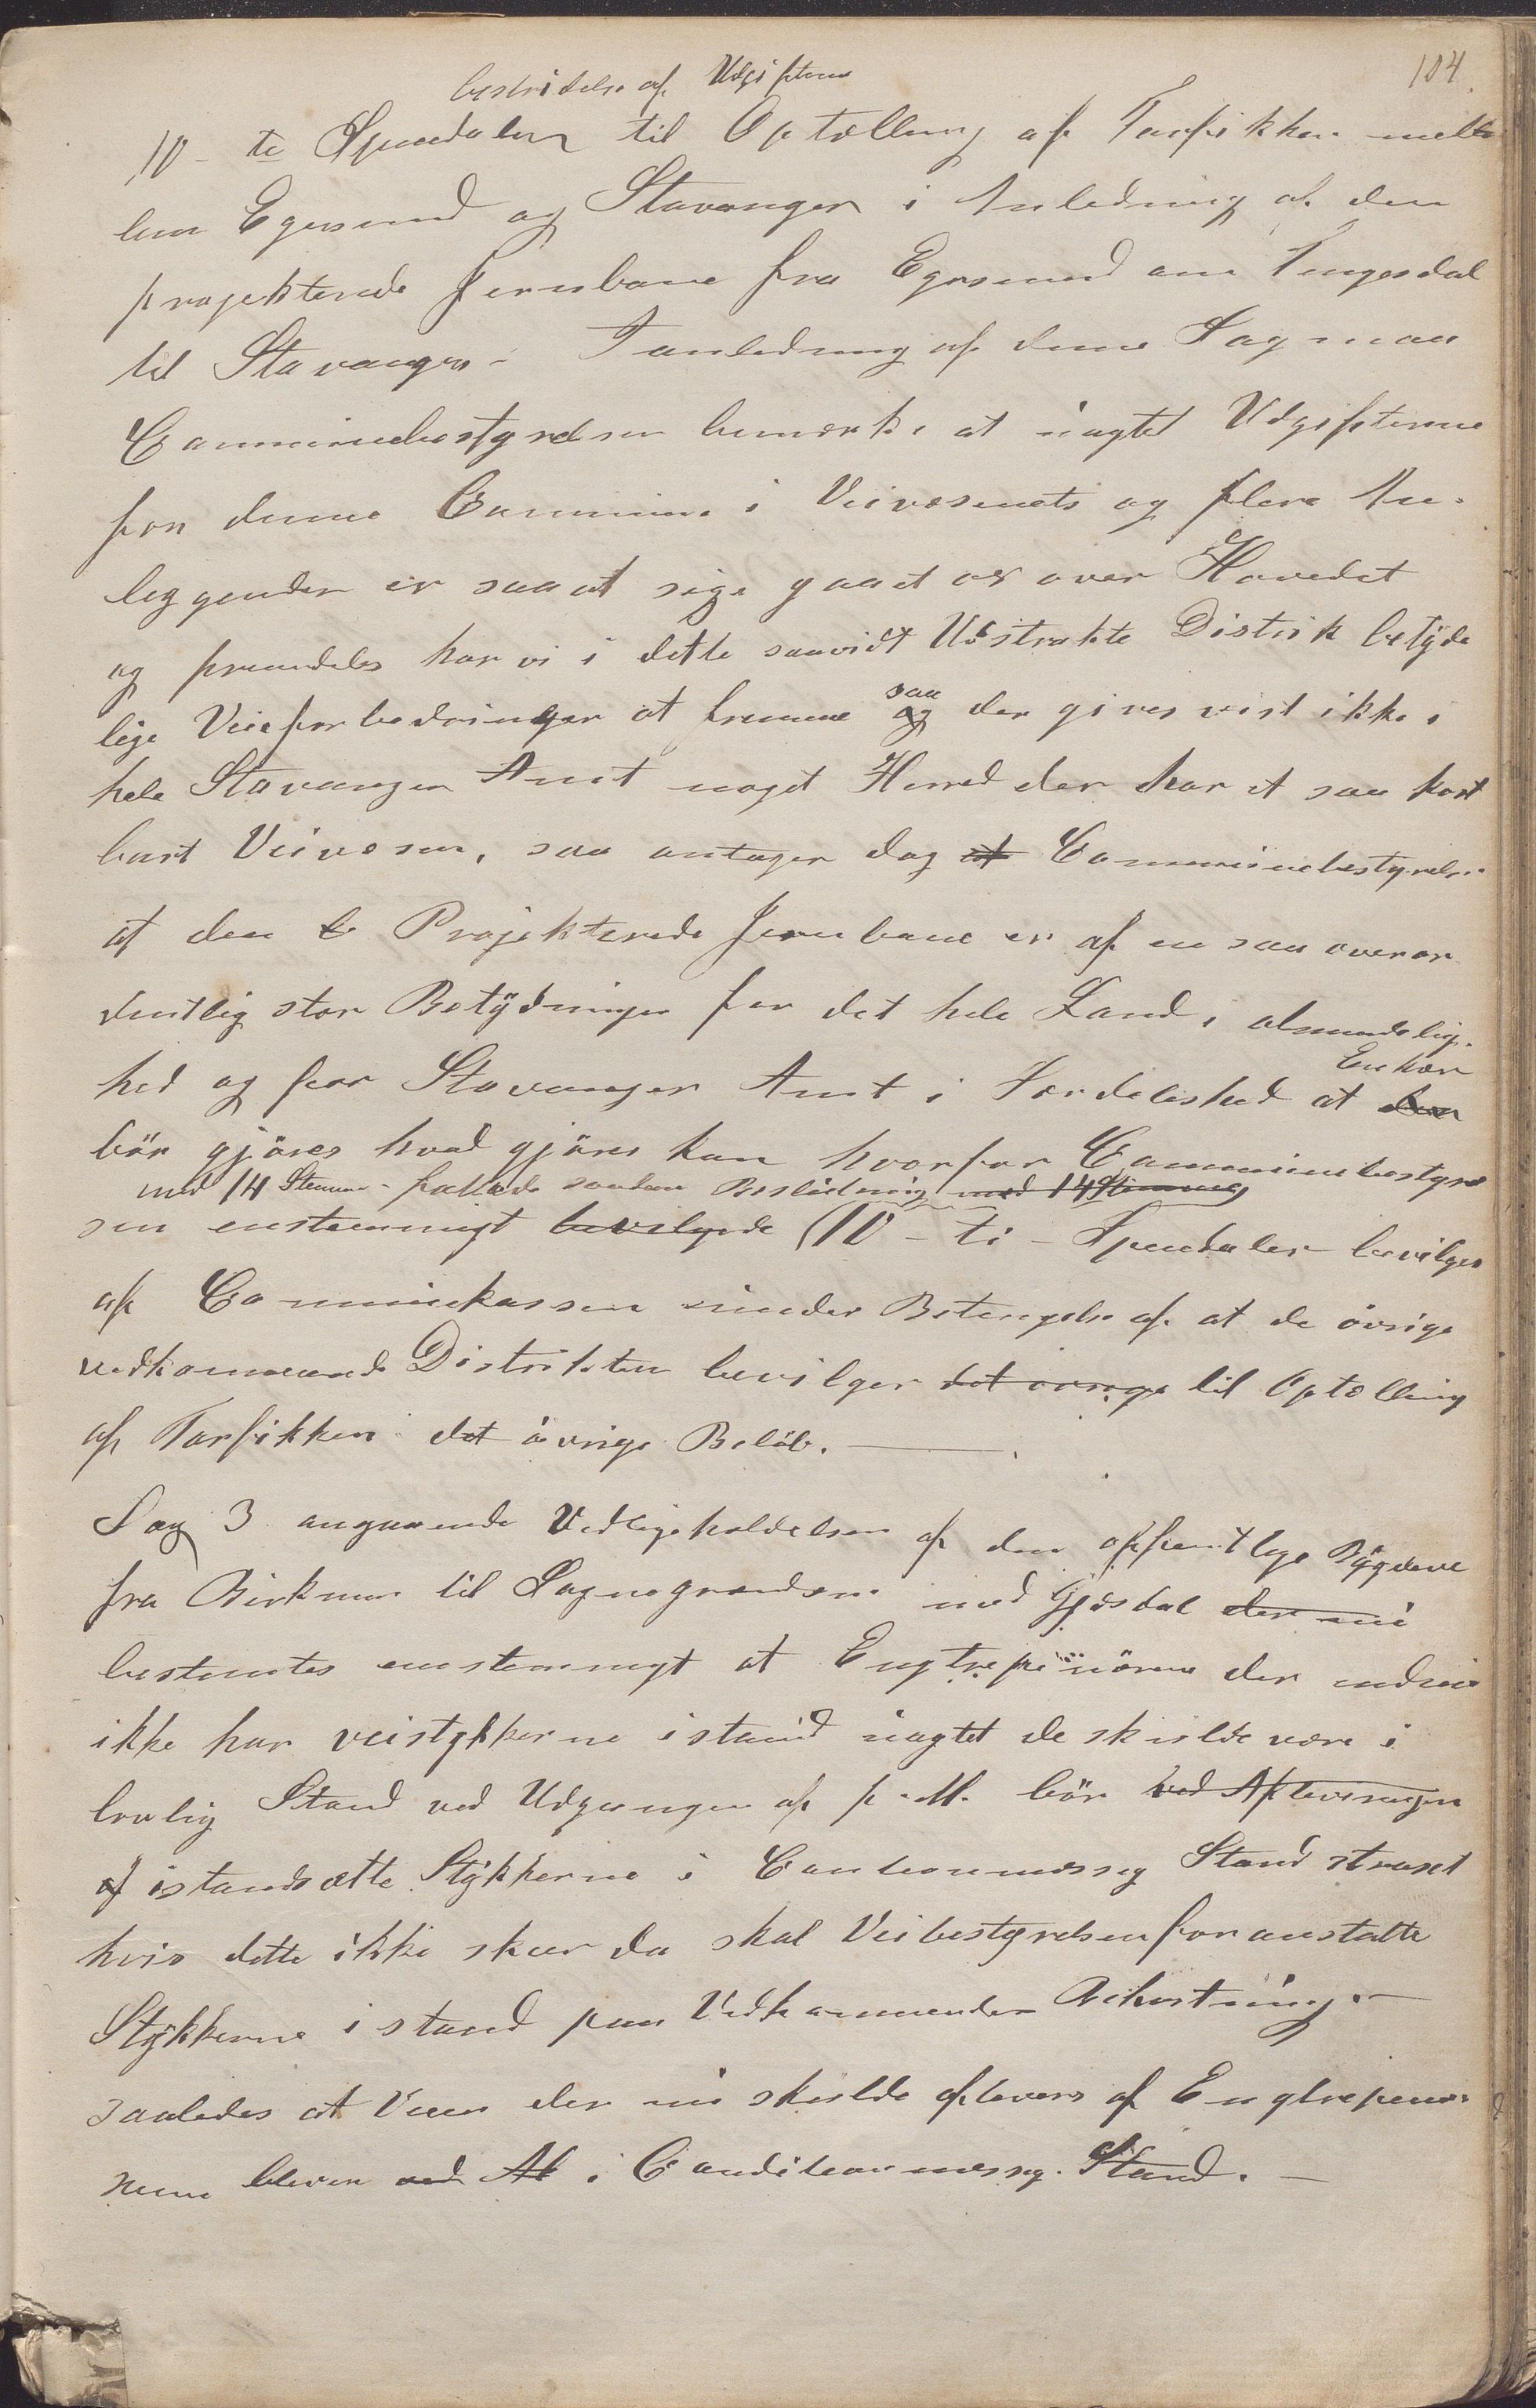 104.
bestridelse af Udgifterne
10 - ti Speciedaler til Optælling af Tarfikken mel
lem Egersund og Stavanger i Anledning af den
projekterede Jernbane fra Egersund om Tengesdal
til Stavanger - I anledning af denne Sag maa
Communebestyrelsen bemærke at uagtet Udgifterne
for denne Commune i Veivæsenets og flere An-
leggender er saa at sige gaaet os over Hovedet
og fremdeles har vi i dette saavidt Udstrakte Distrik betyde
saa
lige Veieforbedringer at fremme og der gives vist ikke i
hele Stavanger Amt noget Herred der har et saa kost
bart Veivæsen, saa antager dog at Communebestyrelsen
at den b Projekterede Jernbane er af en saa overor
dentlig stor Betydning for det hele Land i almindelig-
Enhver
hed og for Stavanger Amt i Særdeleshed at den
bör gjöres hvad gjöres kan hvorfor Communebestyrel
med 14 Stemmer fattede saadan Beslutning med 14 Stemmer
sen enstemmigt bevilgede (10 - ti - Speciedaler bevilges
af Communekassen under Betingelse af at de övrige
vedkommende Distrikter bevilger det övrige til Optælling
af Tarfikken det övrige Belöb.
Sag 3 angaaende Vedligeholdelsen af den offentlige Bygdevei
fra Birkrem til Sognegrændsen med Gjesdal der nu
bestemtes enstemmigt at Engtrepenörerne der endnu
ikke har veistykkerne istand uagtet de skulde være i
lovlig Stand ved Udgangen af f. M. bör ved Afleveringen
af istandsætte Stykkerne i Contraktmæssig Stand straxt
hvis dette ikke skeer da skal Veibestyrelsen foranstalte
Stykkerne istand paa Vedkommendes Bekostning. -
saaledes at Veien der nu skulde afleveres af Engtrepenö-
rerne bliver ved Af i Conditionsmessig Stand. -